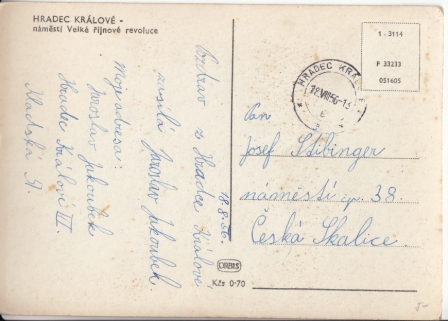 HRADEC KRÁLOVÉ -
náměstí Velké říjnové revoluce
18.8.56.
Pozdrav z Hradce Králové
zasílá Jaroslav Jakoubek.
Moje adresa:
Jaroslav Jakoubek
Hradec Králové III.
1 - 3114
P 33233
051605
HRADEC KRÁLOVÉ
18.VIII.56-13
Pan
Josef Stibinger
náměstí čp. 38.
Česká Skalice
ORBIS
Kčs 0·70